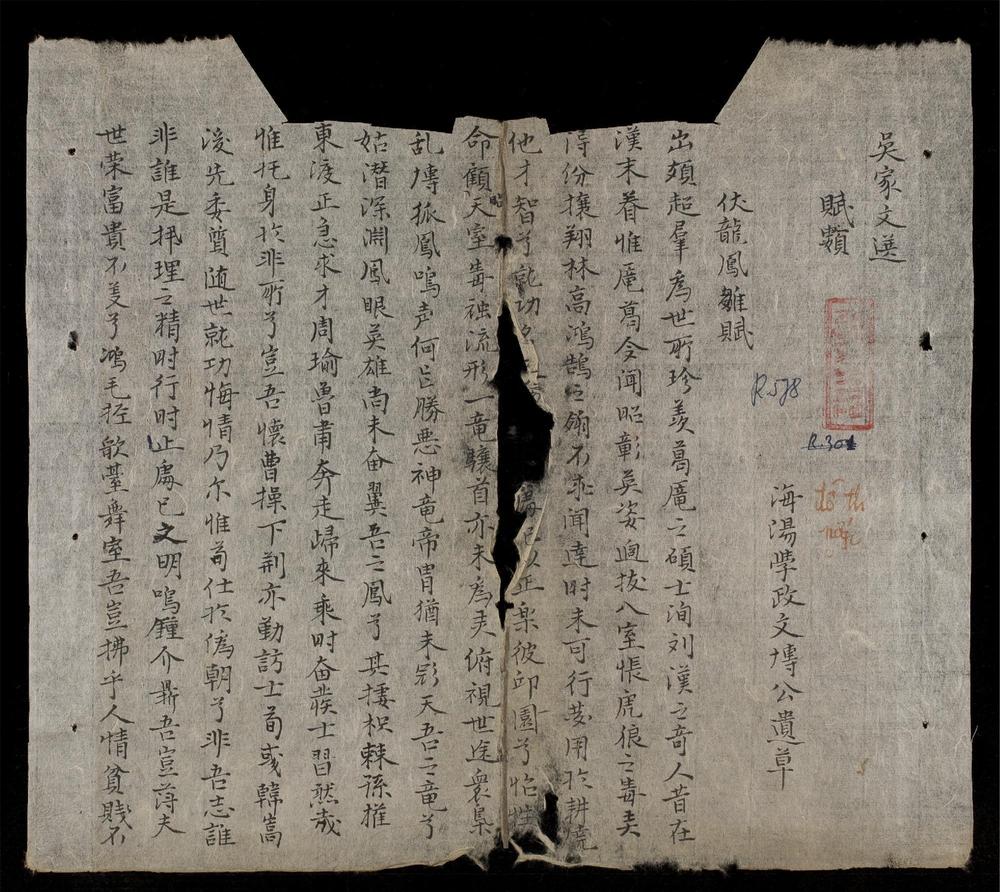 吳家文選
賦類
海陽學政文博公遺草
伏龍鳳雛賦
出類超羣為世所珍羨葛厖之碩士洵刘漢之奇人昔在
漢末眷惟厖葛令闻昭彰英姿逈拔八室悵虎狼之毒夫
得份攘翔林高鴻鵠之翎不求闻達时未可行芰用於耕
他才智兮就功處已以正楽彼邱園兮怡性
命顧天室毒被流形一竜驤首亦未為灵俯視世途衆梟
乱嘑孤鳳嗚声何足勝悪神竜帝胄猶未彩天吾之竜兮
姑潜深渊鳳眼英雄尚未奋翼吾之鳳兮其捿枳棘孫摧
東渡正急求才周瑜魯肅奔走歸來乘时奋蕟士習㷊哉
惟托身於非所兮豈吾懷曹操下荆亦勤訪士荀彧韓嵩
後先委質随世就功悔情乃尔惟苟仕於偽朝兮非吾志誰
非誰是抨理之精时行时止處已文明鳴鐘介鼎吾豈薄夫
世荣富貴不羡兮鴻毛挃歌臺舞室吾豈拂乎人情貧賎不
R.578
R.301